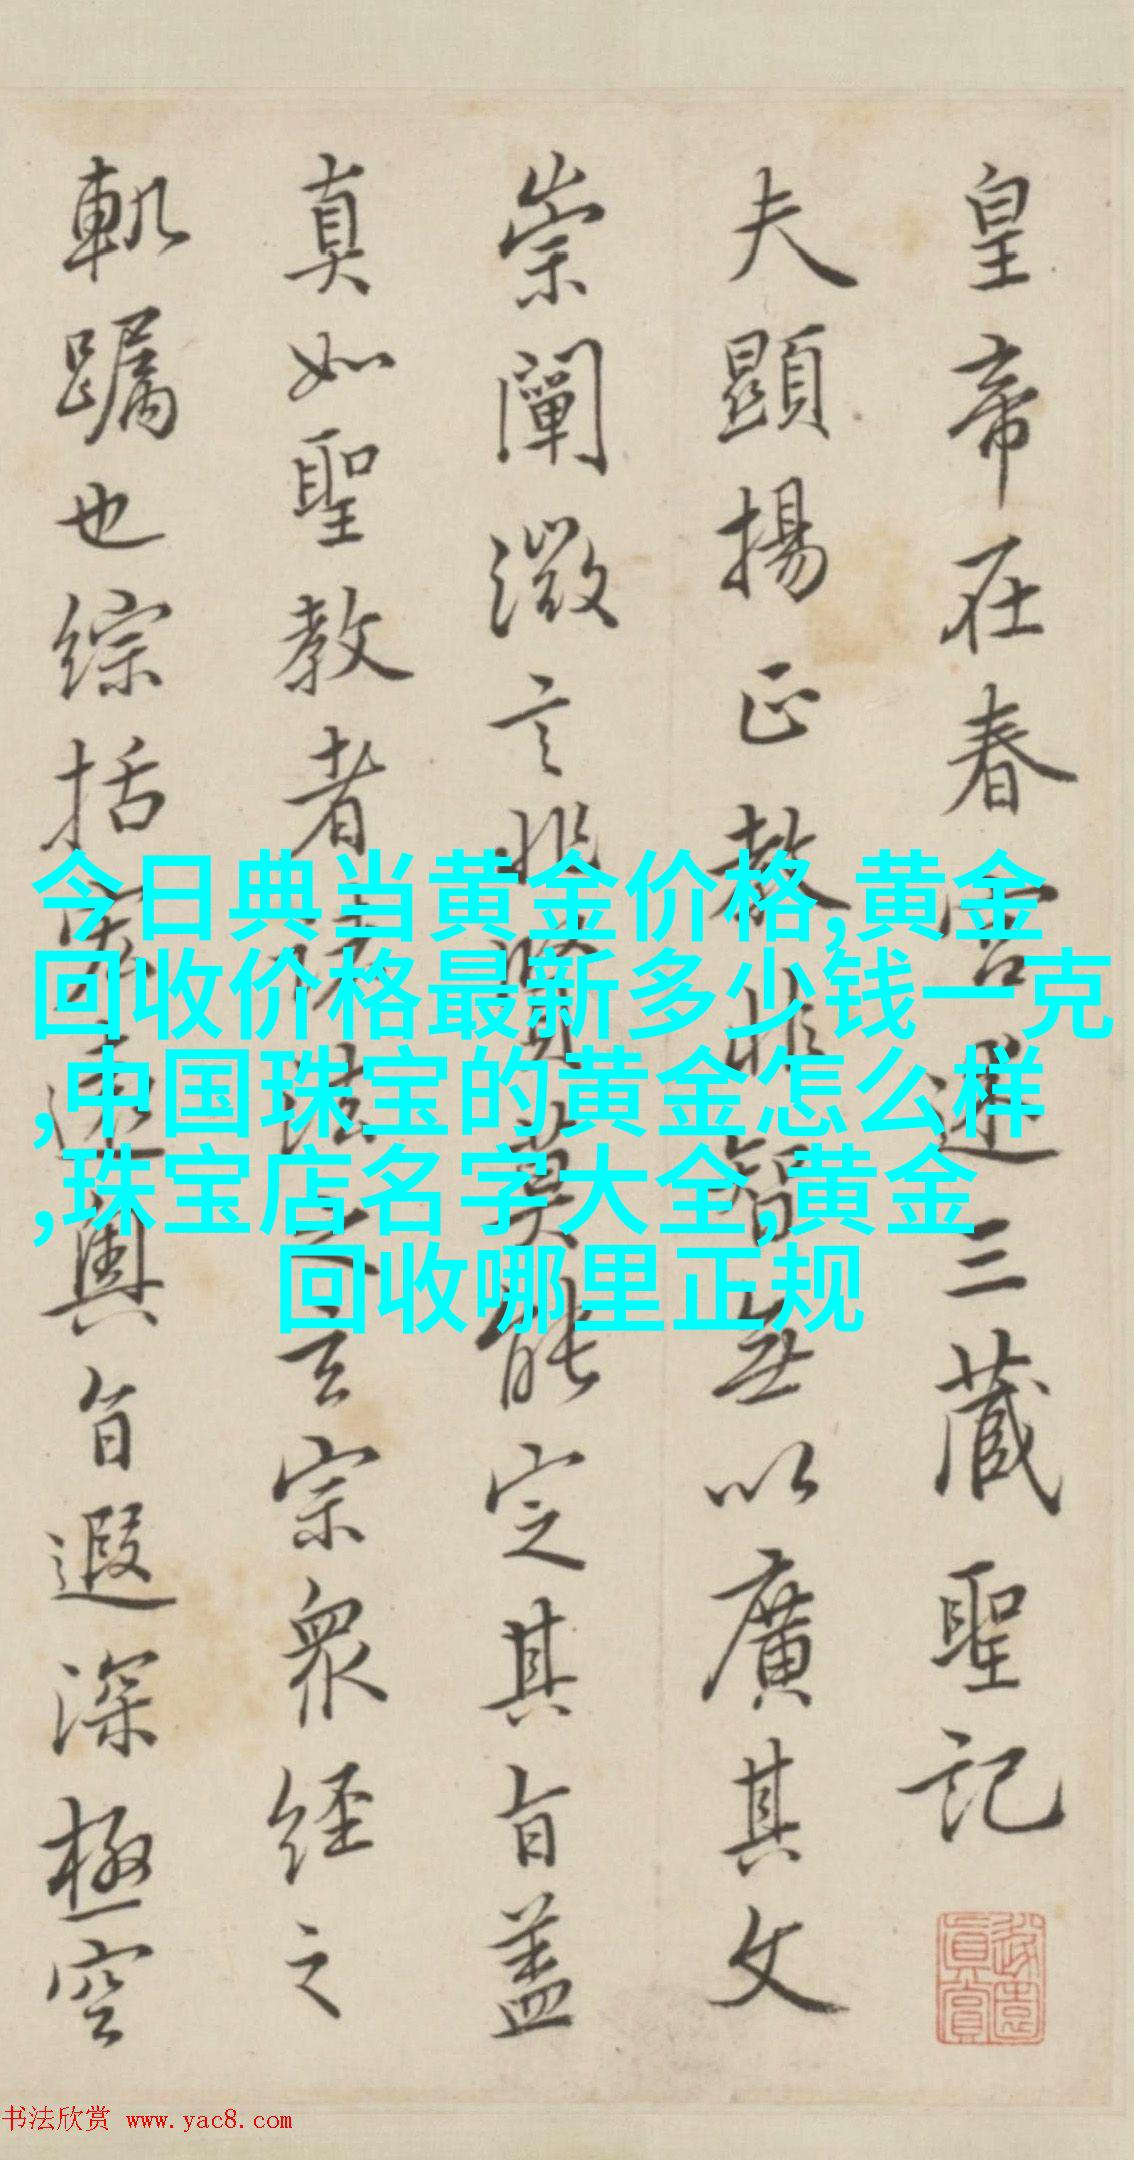 皇帝在春宮述三藏聖記
夫顯揚正教非智無以廣其文
崇闡微言非賢莫能定其旨蓋
真如聖教者諸法之玄宗眾經之
軌躅也綜括宏遠奧旨遐深極空
今日典当黄金价格,黄金
回收价格最新多少钱一克
,中国珠宝的黄金怎么样
,珠宝店名字大全,黄金
回收哪里正规
书法欣赏 www.yac8.com